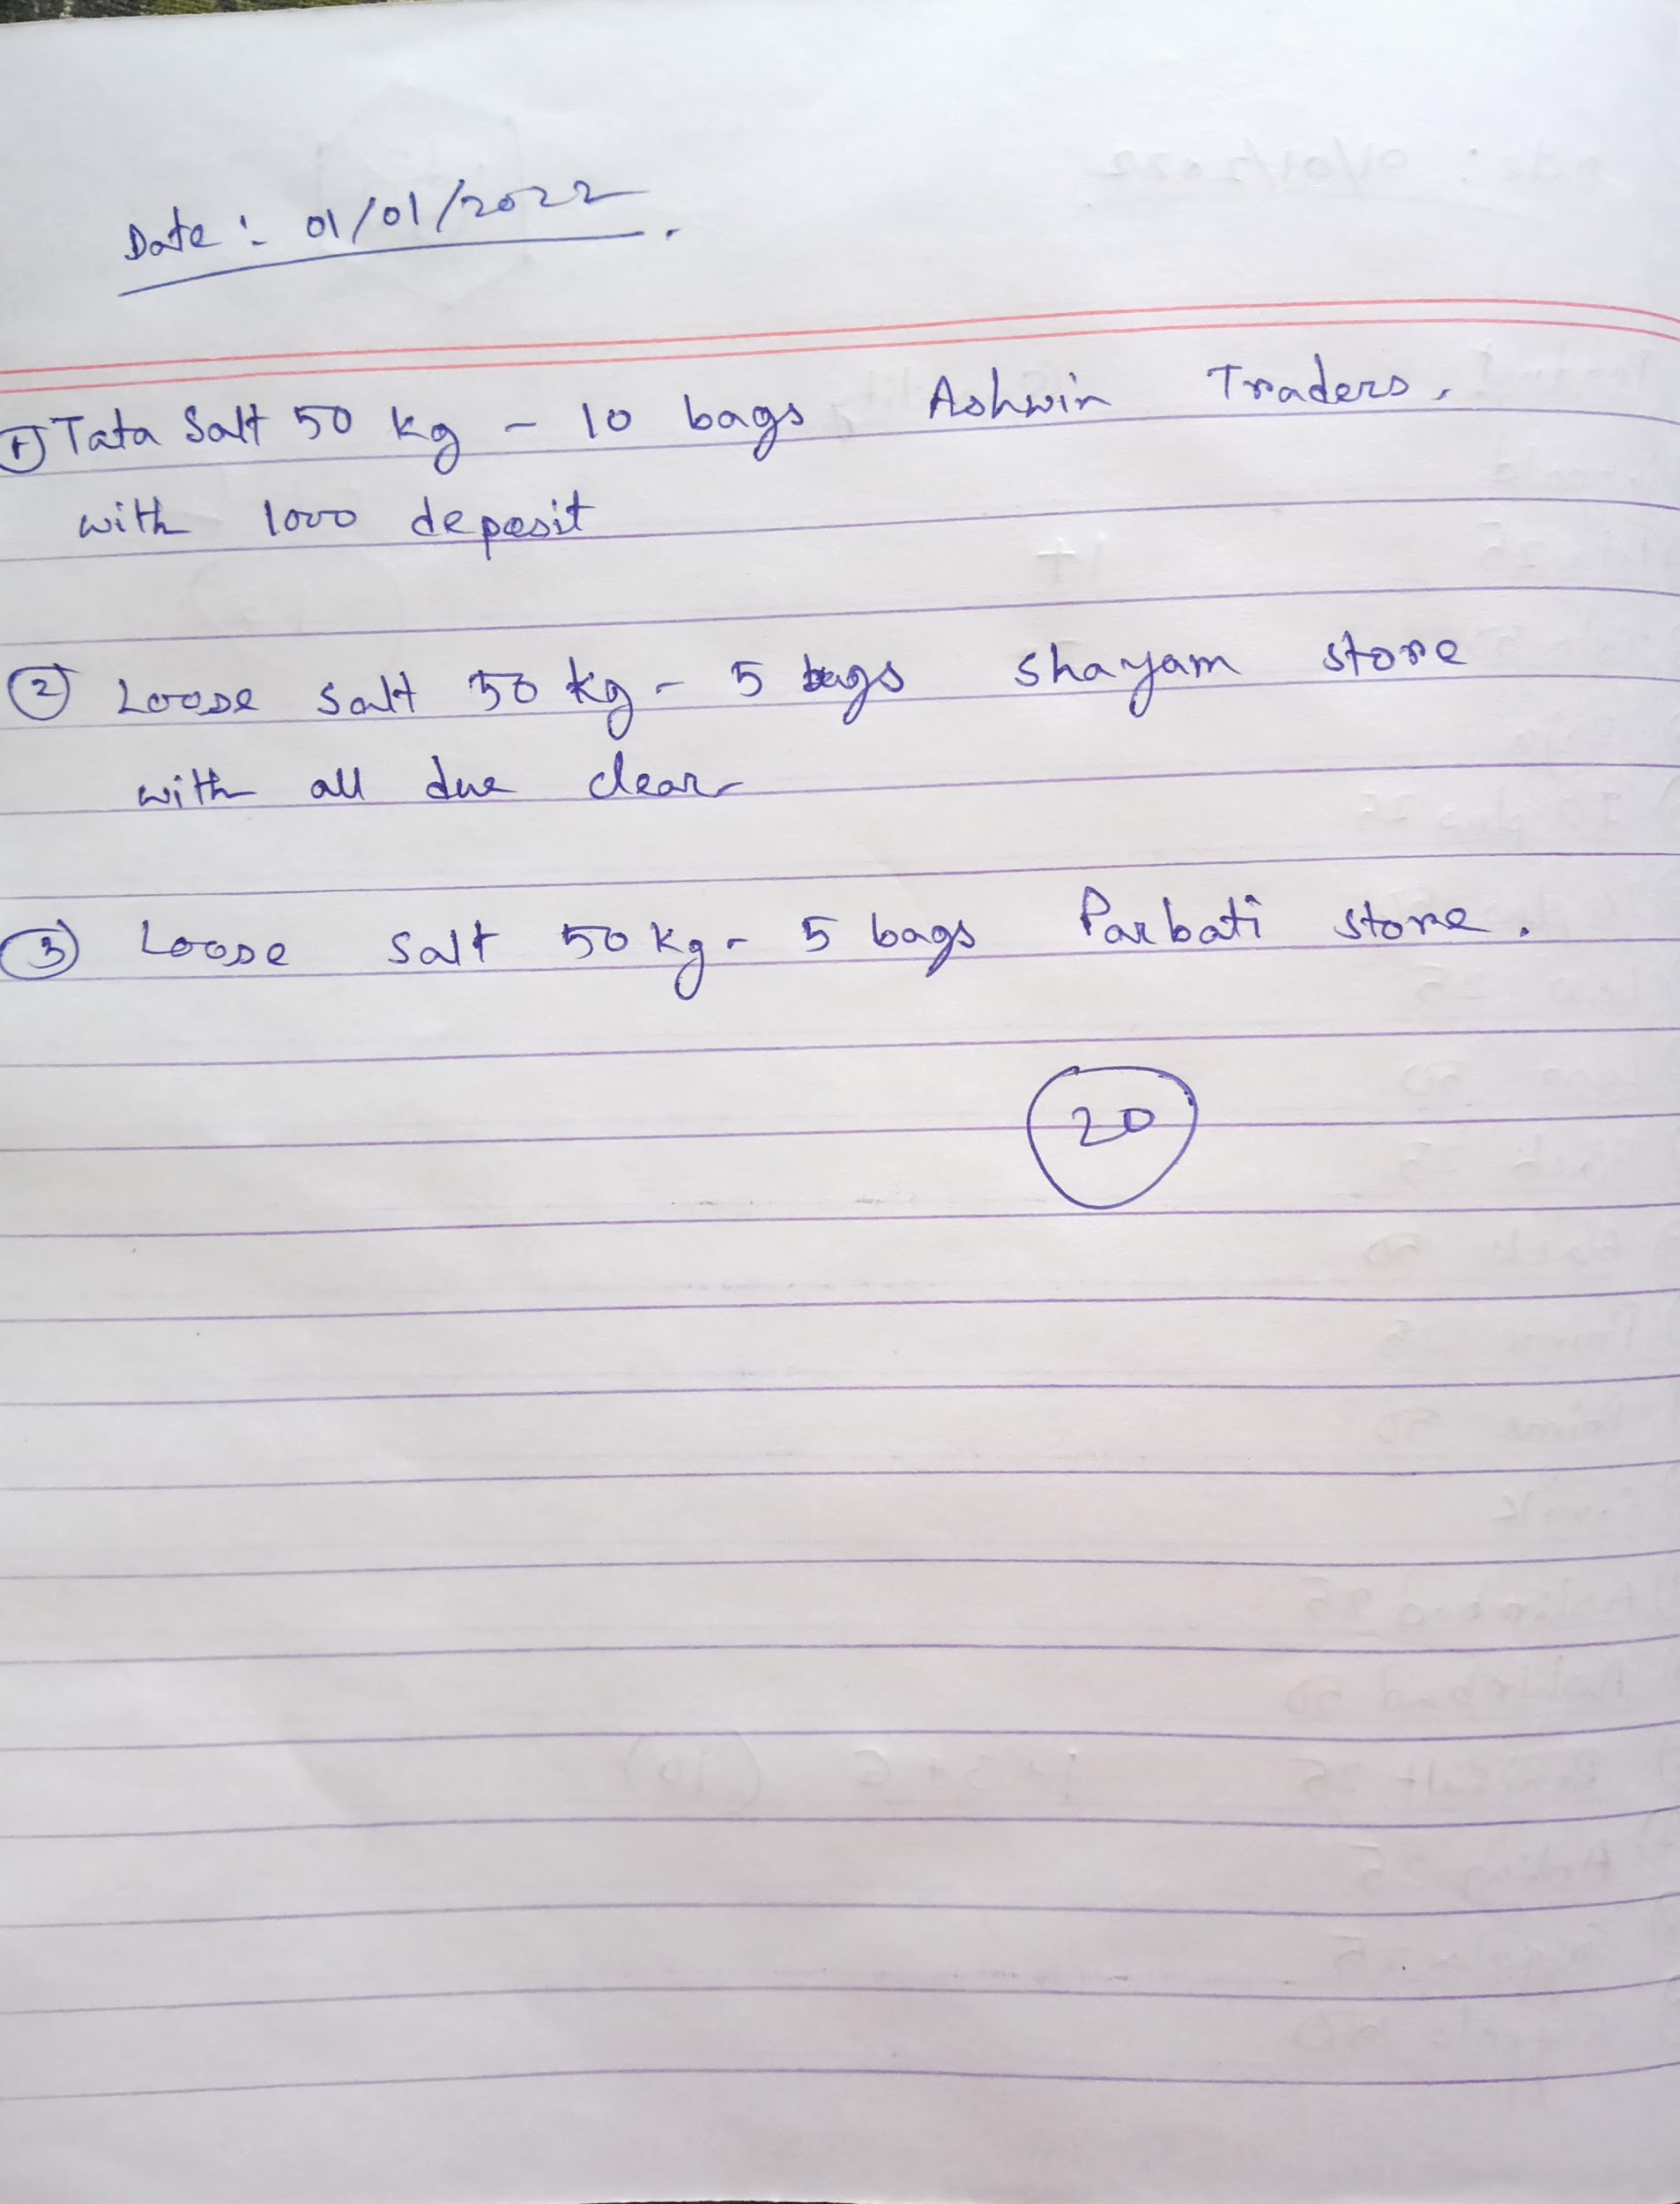 Date :- 01/01/2022.
① Tata Salt 50 kg - 10 bags Ashwin Traders.
with 1000 deposit
② Loose salt 50 kg - 5 bags Shayam store
with all due clear
③ Loose salt 50 kg - 5 bags Parbati store.
20